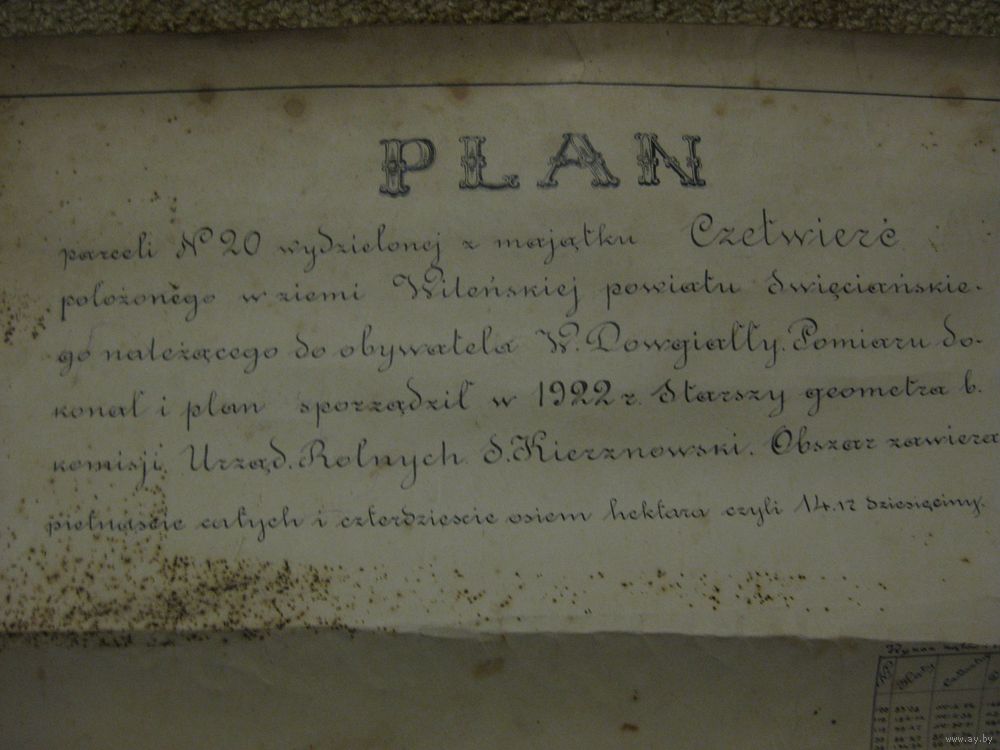 PLAN
parceli № 20 wydzielonej z majątku Czetwierć
położonego w ziemi Wileńskiej powiatu Święciańskie-
go należącego do obywatela W. Dowgiałły. Pomiaru do-
konał i plan sporządził w 1922 r. Starszy geometra b.
komisji Urząd. Rolnych S. Kierznowski. Obszar zawiera
piętnaście całych i czterdzieście osiem hektara czyli 14.17 dziesięciny.
www.ay.by